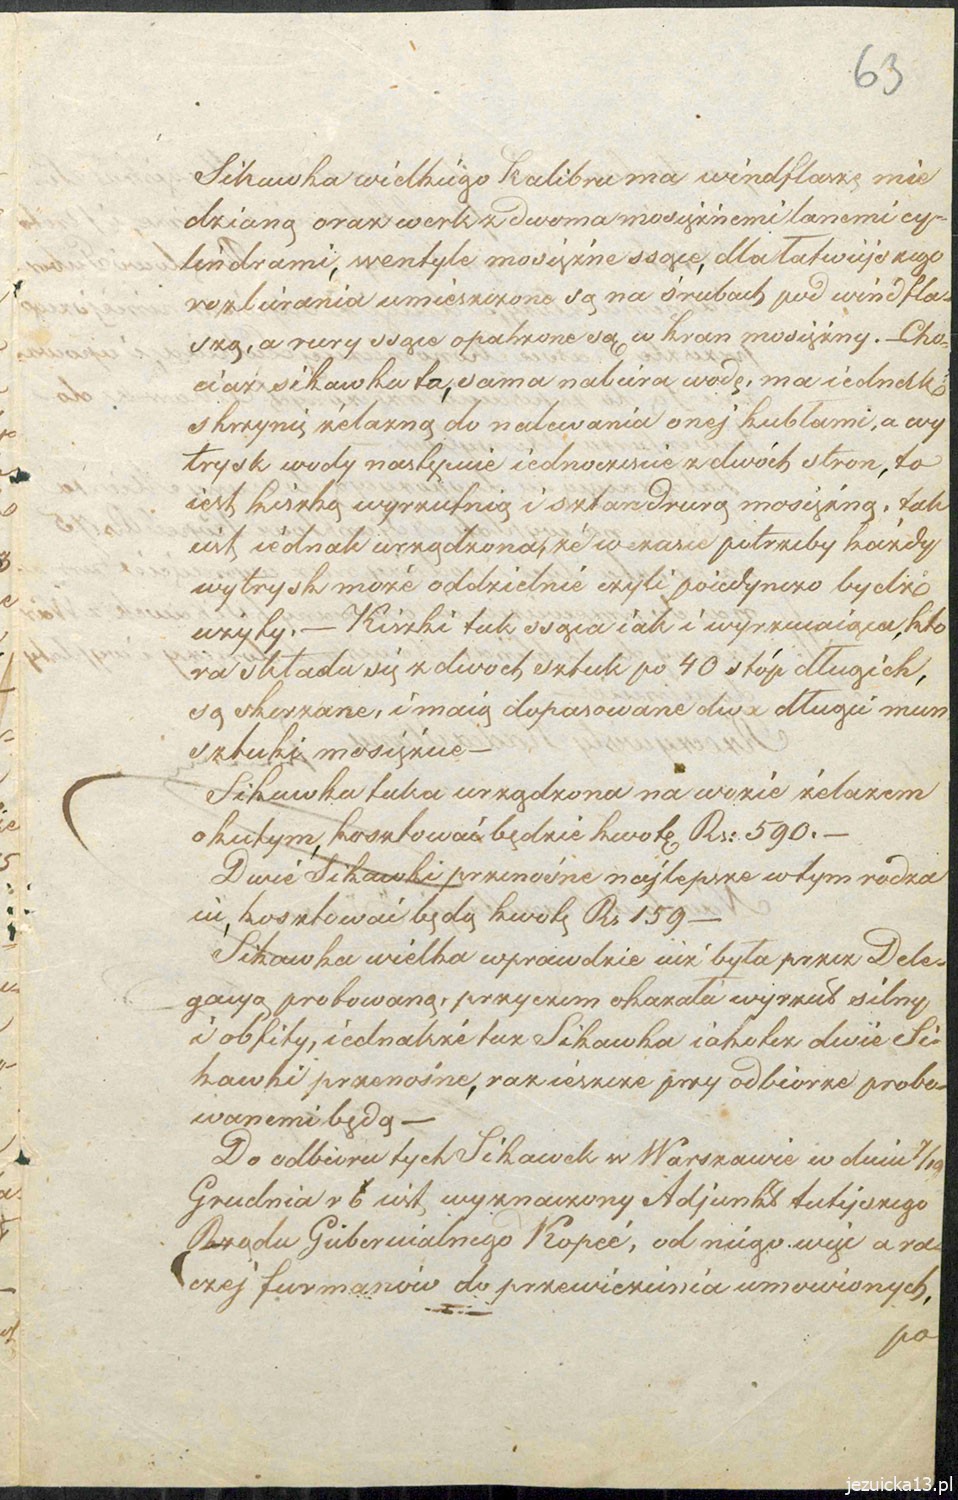 63
Sikawka wielkiego kalibru ma windflaszę mie
dzianą oraz werk z dwoma mosiężnemi lanemi cy-
lindrami, wentyle mosiężne ssące, dla łatwiejszego
rozbierania umieszczone są na śrubach pod windfla-
szą, a rury ssące opatrzone są w kran mosiężny. – Cho-
ciaż sikawka ta, sama nabiera wodę, ma iednak
skrzynię żelazną do nalewania onej kubłami, a wy
trysk wody następuie iednocześnie z dwóch stron, to
iest kiszką wyrzutnią i sztandrurą mosiężną, tak
iest iednak urządzona, że w czasie potrzeby każdy
wytrysk może oddzielnie czyli poiedynczo bydź
użyty. – Kiszki tak ssąca iak i wyrzucaiąca, któ
ra składa się z dwoch sztuk po 40 stóp długich,
są skorzane, i maią dopasowane dwa długie mun
sztuki mosiężne –
Sikawka taka urządzona na wozie żelazem
okutym, kosztować będzie kwotę Rs: 590. –
Dwie Sikawki przenośne najlepsze w tym rodza
iu, kosztować będą kwotę Rs 159 –
Sikawka wielka wprawdzie iuż była przez Dele-
gacyą probowaną, przyczem okazała wyrzut silny
i obfity, iednakże taż Sikawka iakoteż dwie Si-
kawki przenośne, raz ieszcze przy odbiorze probo-
wanemi będą –
Do odbioru tych Sikawek w Warszawie w dniu 7/19
Grudnia r b iest wyznaczony Adjunkt tutejszego
Rządu Gubernialnego Kopeć, od niego więc a ra-
czej furmanów do przewiezienia umowionych,
po
jezuicka13.pl